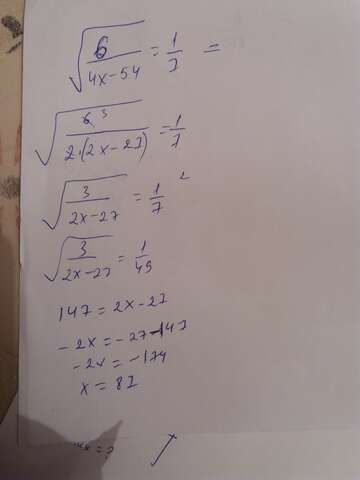 √(6/(4x-54)) = 1/7 =
√(6 3/(2·(2x-27))) = 1/7
√(3/(2x-27)) = 1/7 ²
√(3/(2x-27)) = 1/49
147 = 2x-27
-2x = -27-147
-2x = -174
x = 87